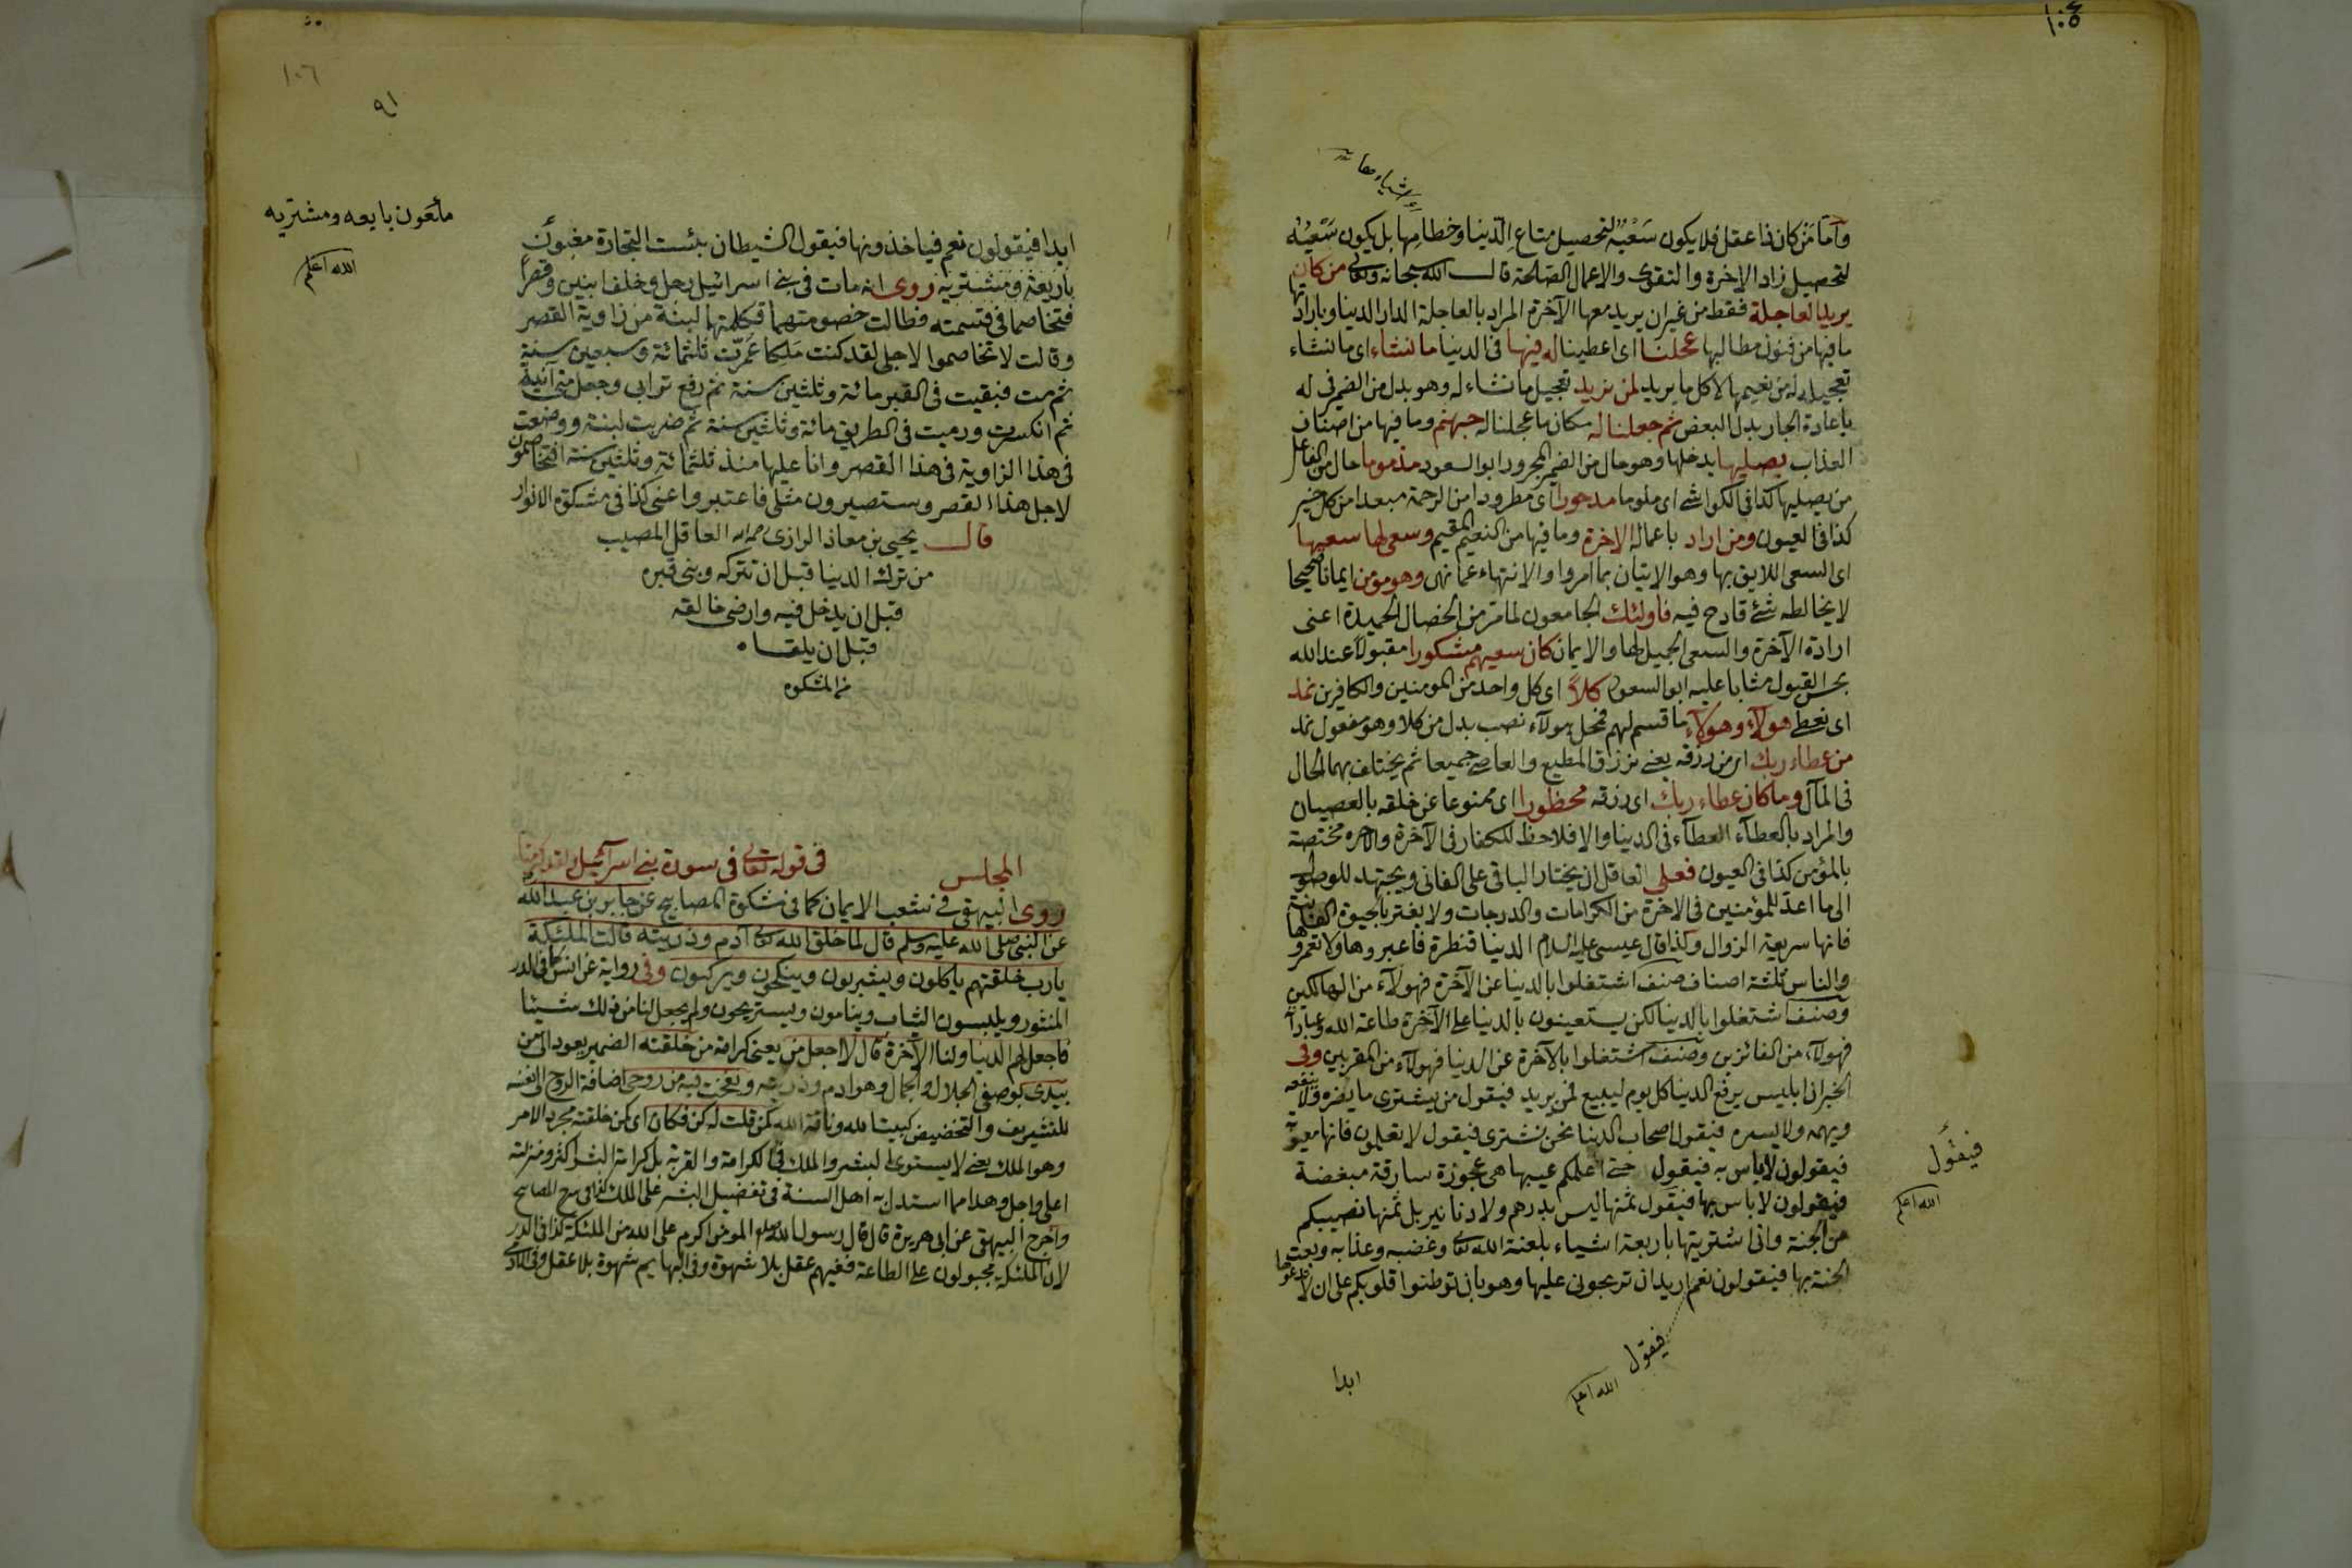 ١٠٥
واما من كان ذا عقل فلا يكون سعيه لتحصيل متاع الدنيا وخطامها بل يكون سعيه
لتحصيل زاد الاخرة والتقوى والاعمال الصالحة قال الله سبحانه وتعالى من كان
يريد العاجلة فقط من غير ان يريد معها الآخرة المراد بالعاجلة الدار الدنيا وبارادتها
ما فيها من فنون مطالبها عجلنا اى اعطينا له فيها فى الدنيا ما نشاء اى ما نشاء
تعجيله له من نعيمها لا كل ما يريد لمن نريد تعجيل ما نشاء له وهو بدل من الضمير فى له
باعادة الجار بدل البعض ثم جعلنا له مكان ما عجلنا له جهنم وما فيها من اصناف
العذاب يصليها يدخلها وهو حال من الضمير المجرور ابو السعود مذموما حال من الفاعل
من يصليها كذا فى الكواشى اى ملوما مدحورا اى مطرودا من الرحمة مبعدا من كل خير
كذا فى العيون ومن اراد باعماله الاخرة وما فيها من النعيم المقيم وسعى لها سعيها
اى السعى اللايق بها وهو الاتيان بما امروا والانتهاء عما نهى وهو مومن ايمانا صحيحا
لا يخالطه شئ قادح فيه فاولئك الجامعون لما مر من الخصال الحميدة اعنى
ارادة الآخرة والسعى الجميل لها والايمان كان سعيهم مشكورا مقبولا عند الله
بحسن القبول مثابا عليه ابو السعود كلا اى كل واحد من المومنين والكافرين نمد
اى نعطى هولآء وهولآء ما قسم لهم فمحل هولآء نصب بدل من كلا وهو مفعول نمد
من عطاء ربك اى من رزقه يعنى نرزق المطيع والعاصى جميعا ثم يختلف بهما الحال
فى المآل وما كان عطاء ربك اى رزقه محظورا اى ممنوعا عن خلقه بالعصيان
والمراد بالعطآء العطآء فى الدنيا والا فلا حظ للكفار فى الآخرة والاخره مختصة
بالمؤمن كذا فى العيون فعلى العاقل ان يختار الباقى على الفانى ويجتهد للوصول
الى ما اعد للمؤمنين فى الاخرة من الكرامات والدرجات ولا يغتر بالحيوة الفانية
فانها سريعة الزوال وكذا قال عيسى عليه السلام الدنيا قنطرة فاعبروها ولا تعمروها
والناس ثلثة اصناف صنف اشتغلوا بالدنيا عن الآخرة فهولآء من الهالكين
وصنف اشتغلوا بالدنيا لكن يستعينون بالدنيا على الآخرة طاعة الله وعبادة
فهولآء من الفائزين وصنف اشتغلوا بالآخرة عن الدنيا فهولآء من المقربين وفى
الخبر ان ابليس يرفع الدنيا كل يوم ليبيع لمن يريد فيقول من يشترى ما يضره ولا ينفعه
ويهمه ولا يسره فيقول اصحاب الدنيا نحن نشترى فيقول لا تعجلون فانها معيوبة
فيقولون لا باس به فيقول حتى اعلمكم عيبها هى عجوزة سارقة مبغضة
فيقولون لا باس بها فيقول ثمنها ليس بدرهم ولا دنانير بل ثمنها نصيبكم
من الجنة وانى اشتريتها باربعة اشياء بلعنة الله تعالى وغضبه وعذابه وبعت
الجنة بها فيقولون نعم اريد ان تربحونى عليها وهو بان توطنوا قلوبكم على ان لا تدعوها
فيقول
الله اعلم
فيقول
الله اعلم
ابدا
١٠٦
٩١
ملعون بايعه ومشتريه
الله اعلم
ابدا فيقولون نعم فياخذونها فيقول الشيطان بئست التجارة مغبون
بايعه ومشتريه روى انه مات فى بنى اسرائيل رجل وخلف ابنين وقصرا
فتخاصما فى قسمته فطالت خصومتهما فكلمتهما لبنة من زاوية القصر
وقالت لا تخاصموا لاجلى لقد كنت ملكا عمرت ثلثمائة وسبعين سنة
ثم مت فبقيت فى القبر مائة وثلثين سنة ثم رفع ترابى وجعل منى آنية
ثم انكسرت ورميت فى الطريق مائة وثلثين سنة ثم ضربت لبنة ووضعت
فى هذا الزاوية فى هذا القصر وانا عليها منذ ثلثمائة وثلثين سنة اتتخاصمون
لاجل هذا القصر وستصيرون مثلى فاعتبروا عنى كذا فى مشكوة الانوار
قال يحيى بن معاذ الرازى رحمه الله العاقل المصيب
من ترك الدنيا قبل ان تتركه وبنى قبره
قبل ان يدخل فيه وارضى خالقه
قبل ان يلقاه
من المشكوه
المجلس فى قوله تعالى فى سورة بنى اسرآئيل ولقد كرمنا
روى البيهقى فى شعب الايمان كما فى مشكوة المصابيح عن جابر بن عبد الله
عن النبى صلى الله عليه وسلم قال لما خلق الله تعالى آدم وذريته قالت الملئكة
يارب خلقتهم ياكلون ويشربون وينكحون ويركبون وفى رواية عن انس كما فى الدر
المنثور ويلبسون الثياب وينامون ويستريحون ولم يجعل لنا من ذلك شيئا
فاجعل لهم الدنيا ولنا الآخرة قال لا اجعل من يعنى كرامة من خلقته الضمير يعود الى من
بيدى بوصفى الجلال والجمال وهو ادم وذريته ونفخت فيه من روحى اضافة الروح الى نفسه
للتشريف والتخصيص كبيت الله وناقة الله كمن قلت له كن فكان اى كمن خلقته بمجرد الامر
وهو الملك يعنى لا يستوى البشر والملك فى الكرامة والقربة بل كرامة البشر اكثر ومنزلته
اعلى واجل وهذا مما استدل به اهل السنة فى تفضيل البشر على الملك كذا فى شرح المصابيح
واخرج البيهقى عن ابى هريرة قال قال رسول الله صلعم المومن اكرم على الله من الملئكة كذا فى الدر
لان الملئكة مجبولون على الطاعة ففيهم عقل بلا شهوة وفى البهايم شهوة بلا عقل وفى الادمى